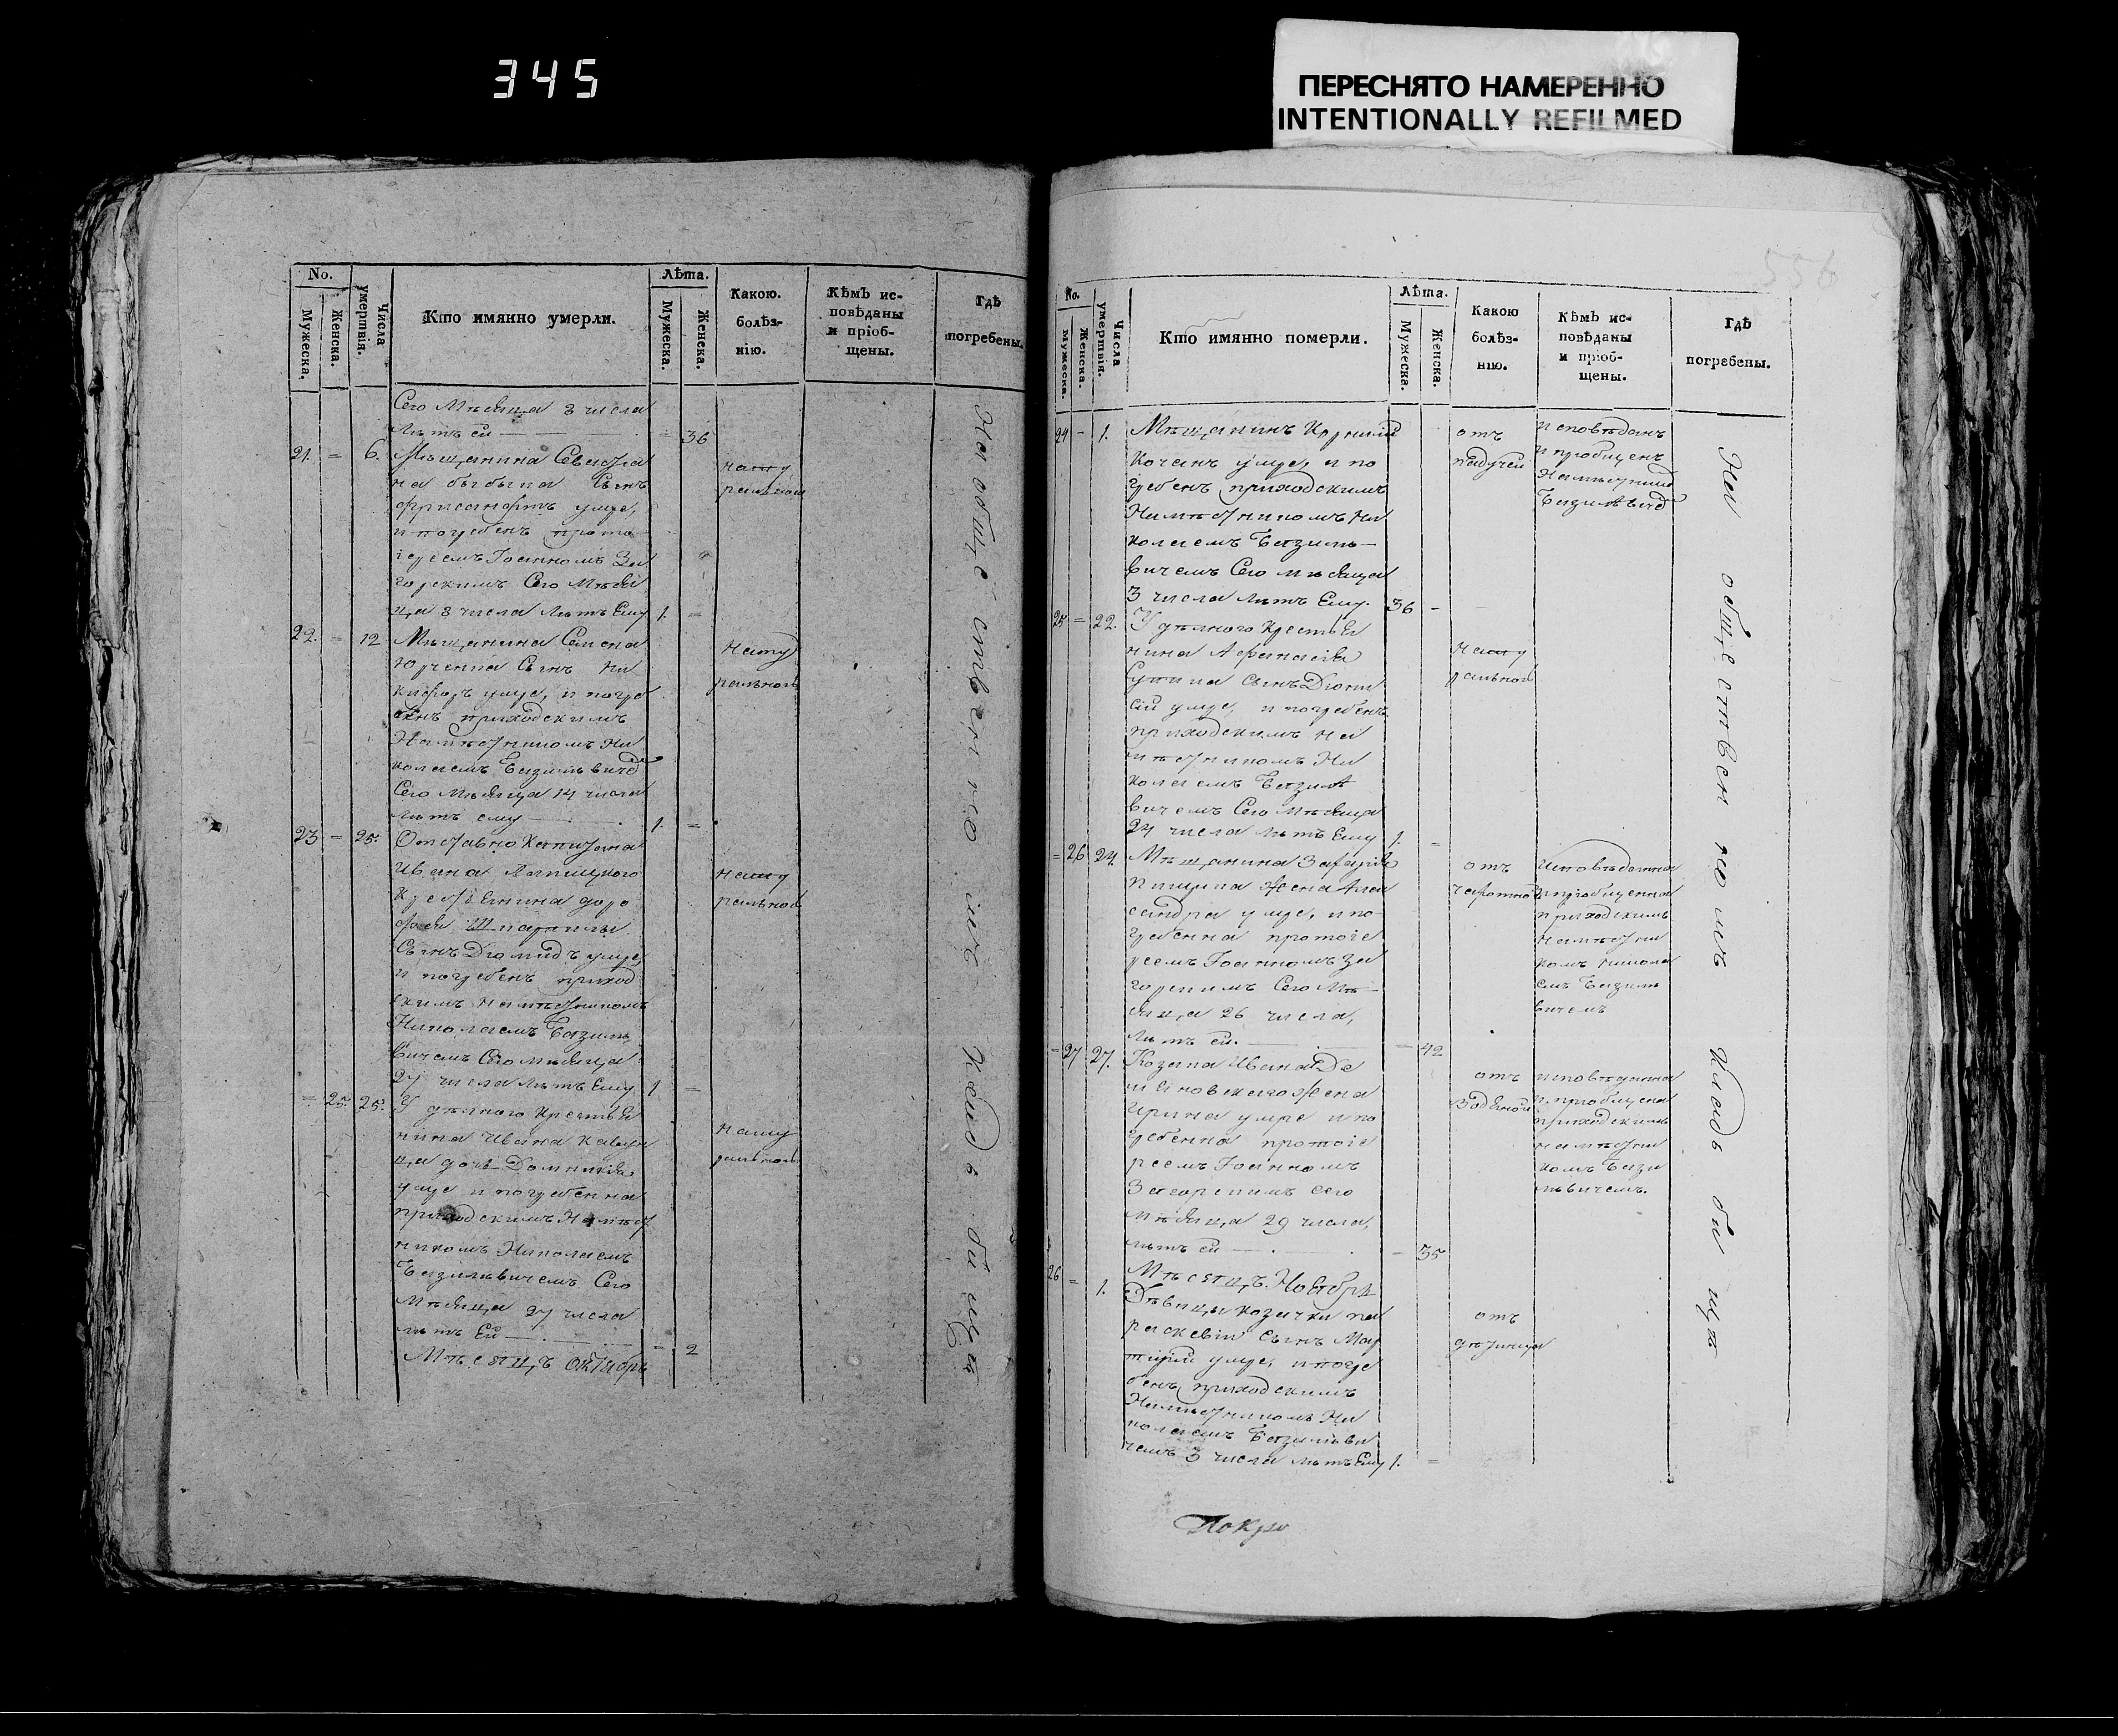 345
ПЕРЕСНЯТО НАМЕРЕННО
INTENTIONALLY REFILMED
No.
Мужеска.
Женска.
Числа умертвія.
Кто имянно умерли.
Лѣта.
Мужеска.
Женска.
Какою. болѣз- нію.
Кѣмъ ис- повѣданы и пріоб- щены.
Гдѣ погребены.
Сего Мѣсяца 8 числа
лѣтъ ей = 36
21. = 6. Мѣщанина
сынъ
умре,
и погребенъ прото
іереемъ Іоанномъ За
горскимъ Сего Мѣся
ца 8 числа лѣтъ Ему 1. =
нату
ральной
22. = 12 Мѣщанина Семена
сынъ Ни
кифоръ умре, и погре
бенъ приходскимъ
Намѣстникомъ Ни
колаемъ Базилевичемъ
Сего Мѣсяца 14 числа
лѣтъ ему 1. =
нату
ральной
23 = 25. Отставно Капитана
Ивана
Крестьянина доро
фея
Сынъ Диомидъ умре,
и погребенъ приход
скимъ намѣстникомъ
Николаемъ Базиль
вичемъ Сего мѣсяца
27 числа лѣтъ Ему 1 =
нату
ральной
= 25. 25. Удѣлного Крестья
нина Ивана
ца дочь Домникія
умре и погребенна
приходскимъ Намѣст
никомъ Николаемъ
Базильвичемъ Сего
Мѣсяца 27 числа
лѣтъ Ей = 2
нату
ральной
Мѣсяцъ октябрь
На общественномъ Кладбищѣ
556
No.
Мужеска.
Женска.
Числа умертвія.
Кто имянно померли.
Лѣта.
Мужеска.
Женска.
Какою болѣз- нію.
Кѣмъ ис- повѣданы и пріоб- щены.
Гдѣ погребены.
24 - 1. Мѣщанинъ
умре, и по
гребенъ приходскимъ
Намѣстникомъ Ни
колаемъ Базиль-
вичемъ Сего мѣсяца
3 числа лѣтъ Ему. 36 -
отъ
падучей
исповѣданъ
и пріобщенъ
Намѣстникомъ
25 = 22. Удѣлного Крестья
нина Афанасія
сынъ Діони
сій умре, и погребенъ
приходскимъ на
мѣстникомъ Ни
колаемъ Базиль
вичемъ Сего мѣсяца
24 числа лѣтъ Ему 1. =
нату
ральной
= 26 24. Мѣщанина Захарія
жена Алек
сандра умре, и по-
гребенна протоіе
реемъ Іоанномъ За
горскимъ Сего Мѣ
сяца 26 числа,
лѣтъ ей. - 42
отъ
чахотной
исповѣданна
и пріобщенна
приходскимъ
намѣстни
комъ Никола
емъ Базиль
вичемъ
= 27 27. Козака Ивана Де
мяновского жена
Ирина умре и по
гребенна протоіе
реемъ Іоанномъ
Загорскимъ Сего
Мѣсяца 29 числа,
лѣтъ ей - 35
отъ
водяной
исповѣданна
и пріобщена
приходскимъ
намѣстни
комъ Бази
львичемъ.
Мѣсяцъ. Ноябрь
26 = 1. Дѣвицы козачки Па
раскевіи сынъ Мар
тирій умре, и погре
бенъ приходскимъ
Намѣстникомъ Ни
колаемъ Базильви
чемъ 3 числа лѣтъ Ему 1. =
отъ
На общественномъ Кладбищѣ
Покро